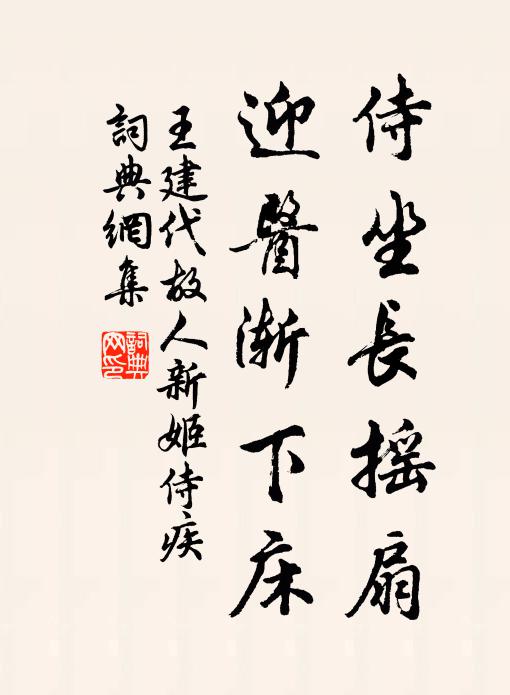 侍坐長摇扇
迎醫漸下床
王建代故人新姬侍疾
詞典網集
詞典網印